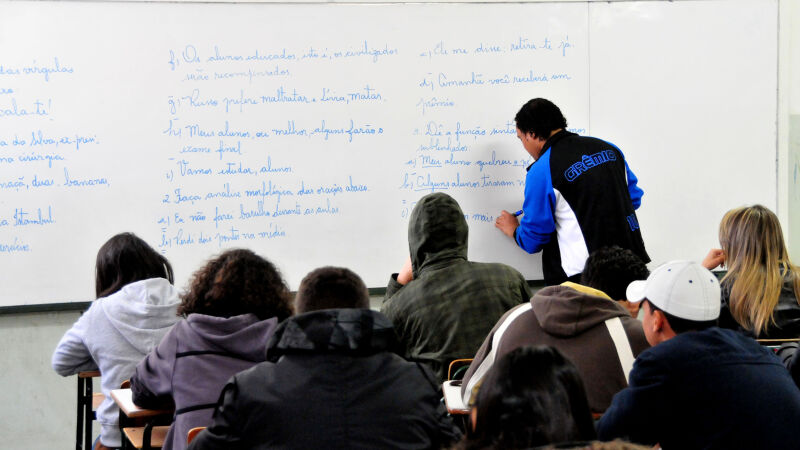 das vírgulas
cala-te!
da do Silva, ex-presi
ma cirurgia.
maçã, doces, bananas,
Istambul.
f) Os alunos educados, isto é, os civilizados
serão recompensados.
g) Russo prefere maltratar e Lívia, matar.
h) Meus alunos, ou melhor, alguns farão o
exame final.
i) Vamos estudar, alunos.
2. Faça análise morfológica das orações abaixo.
a) Eu não farei barulho durante as aulas.
b) Perdi dois pontos na média.
c) Ele me disse: retira-te já.
d) Amanhã você receberá um
prêmio.
3. Dê a função sintá
sublinhados
a) Meu aluno quebrou o
b) Alguns alunos tiraram
c) mais
GRÊMIO